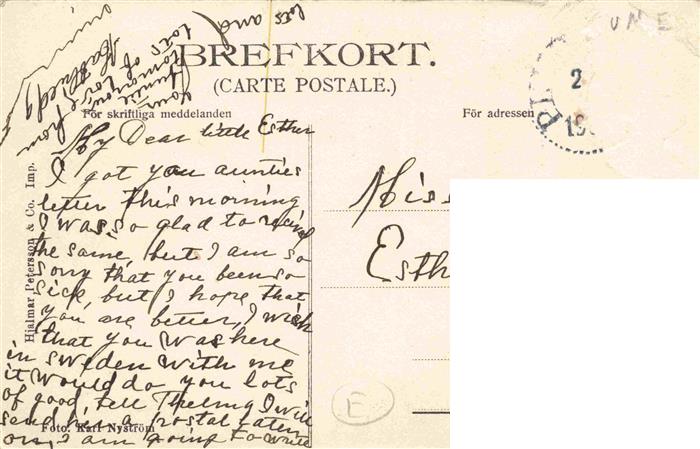 BREFKORT.
(CARTE POSTALE.)
För skriftliga meddelanden
För adressen
My Dear little Esther
I got you aunties
letter this morning
I was so glad to recive
the same, but I am so
sorry that you been so
sick, but I hope that
you are better, I wish
that you was here
in Sweden with me
it would do you lots
of good, tell Thelma I will
send her a postal later
on, I am going to write
lots and
lots of
from
Miss
Esth
E
UNE
2
19
Hjalmar Petersson & Co. Imp.
Foto. Karl Nyström